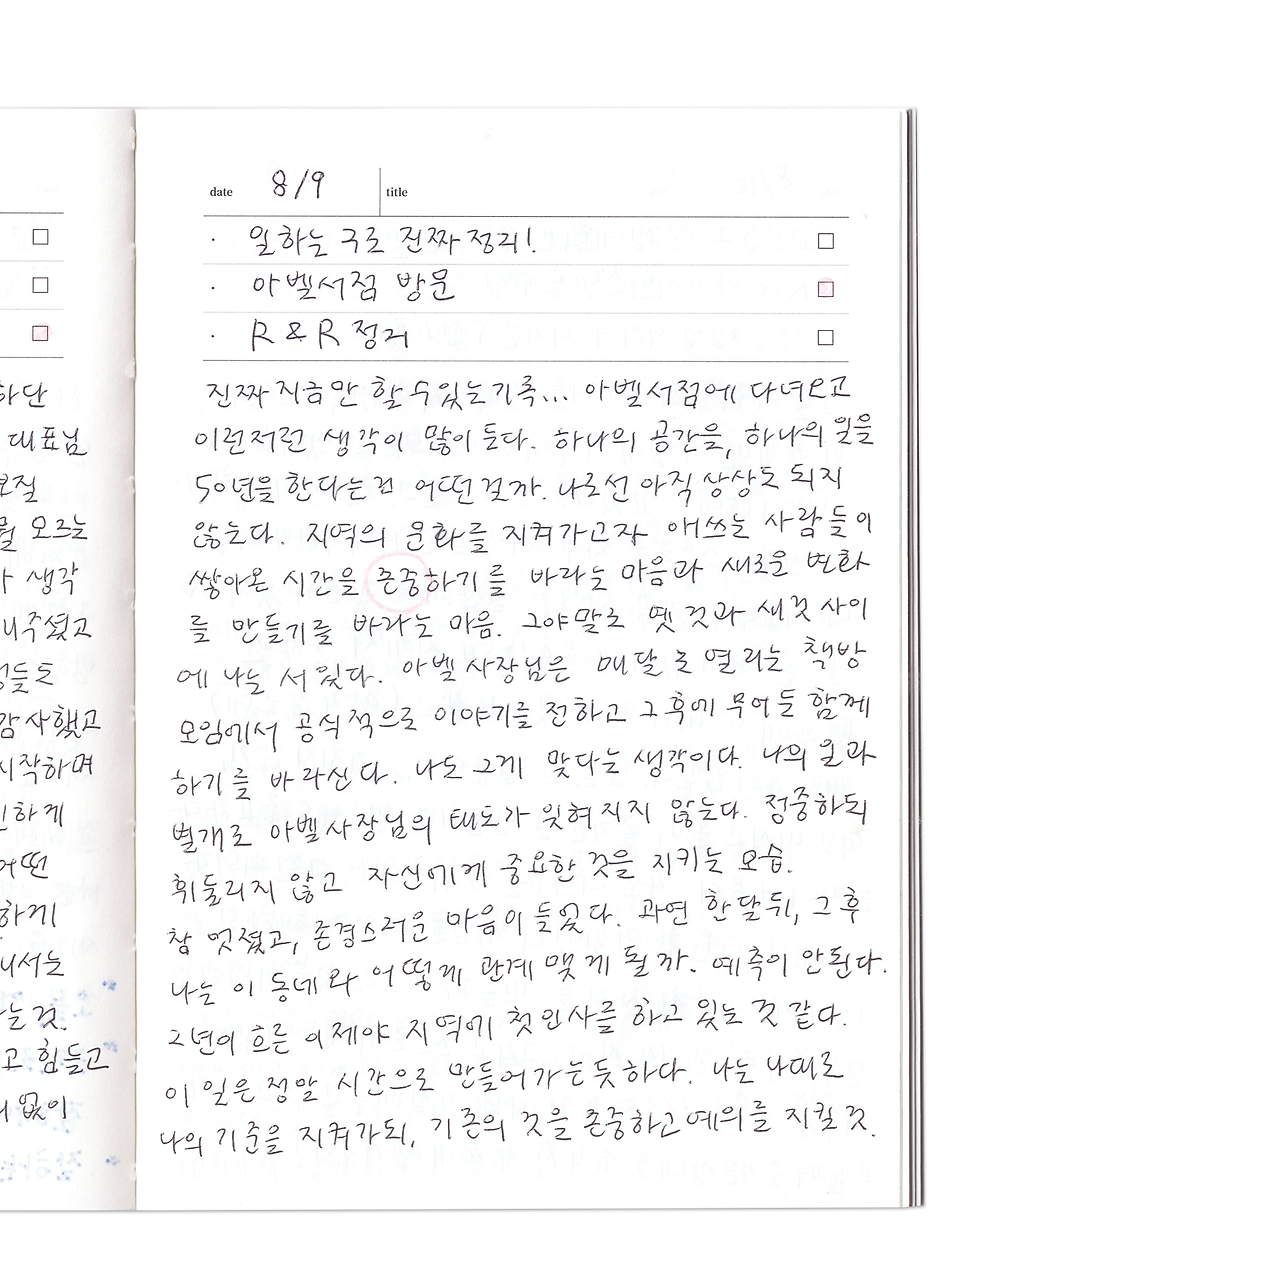 하단
대표님
오르는
생각
내주셨고
감사했고
시작하며
하게
어떤
하게
는 것.
고 힘들고
없이
date 8/9 title
· 일하는 구로 진짜 정리!
· 아벨서점 방문
· R&R 정리
진짜 지금만 할 수 있는 기록... 아벨서점에 다녀오고
이런저런 생각이 많이 든다. 하나의 공간을, 하나의 일을
50년을 한다는 건 어떤 걸까. 나로선 아직 상상도 되지
않는다. 지역의 문화를 지켜가고자 애쓰는 사람들이
쌓아온 시간을 존중하기를 바라는 마음과 새로운 변화
를 만들기를 바라는 마음. 그야말로 옛 것과 새것 사이
에 나는 서있다. 아벨 사장님은 매달 로 열리는 책방
모임에서 공식적으로 이야기를 전하고 그 후에 무어든 함께
하기를 바라신다. 나도 그게 맞다는 생각이다. 나의 일과
별개로 아벨사장님의 태도가 잊혀지지 않는다. 정중하되
휘둘리지 않고 자신에게 중요한 것을 지키는 모습.
참 멋졌고, 존경스러운 마음이 들었다. 과연 한달 뒤, 그 후
나는 이 동네와 어떻게 관계 맺게 될까. 예측이 안된다.
2년이 흐른 이제야 지역에 첫인사를 하고 있는 것 같다.
이 일은 정말 시간으로 만들어가는 듯하다. 나는 나대로
나의 기준을 지켜가되, 기존의 것을 존중하고 예의를 지킬 것.